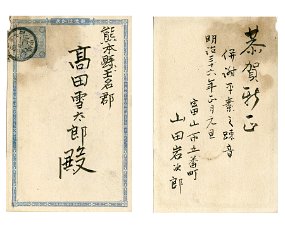 熊本縣玉名郡
髙田雪太郎殿
恭賀新正
併謝平素之疎音
明治三十六年正月元旦
富山市
山田岩次郎